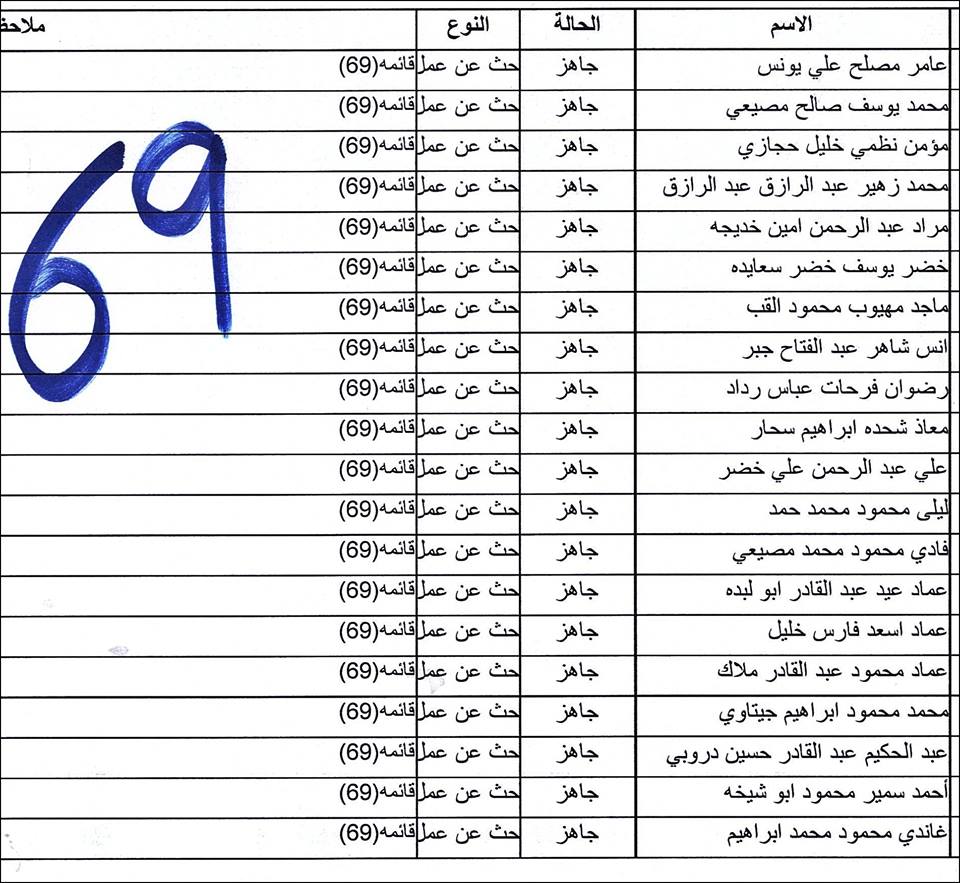 الاسم الحالة النوع ملاحظ
عامر مصلح علي يونس جاهز حث عن عمل قائمه(69)
محمد يوسف صالح مصيعي جاهز حث عن عمل قائمه(69)
مؤمن نظمي خليل حجازي جاهز حث عن عمل قائمه(69)
محمد زهير عبد الرازق عبد الرازق جاهز حث عن عمل قائمه(69)
مراد عبد الرحمن امين خديجه جاهز حث عن عمل قائمه(69)
خضر يوسف خضر سعايده جاهز حث عن عمل قائمه(69)
ماجد مهيوب محمود القب جاهز حث عن عمل قائمه(69)
انس شاهر عبد الفتاح جبر جاهز حث عن عمل قائمه(69)
رضوان فرحات عباس رداد جاهز حث عن عمل قائمه(69)
معاذ شحده ابراهيم سحار جاهز حث عن عمل قائمه(69)
علي عبد الرحمن علي خضر جاهز حث عن عمل قائمه(69)
ليلى محمود محمد حمد جاهز حث عن عمل قائمه(69)
فادي محمود محمد مصيعي جاهز حث عن عمل قائمه(69)
عماد عيد عبد القادر ابو لبده جاهز حث عن عمل قائمه(69)
عماد اسعد فارس خليل جاهز حث عن عمل قائمه(69)
عماد محمود عبد القادر ملاك جاهز حث عن عمل قائمه(69)
محمد محمود ابراهيم جيتاوي جاهز حث عن عمل قائمه(69)
عبد الحكيم عبد القادر حسين دروبي جاهز حث عن عمل قائمه(69)
أحمد سمير محمود ابو شيخه جاهز حث عن عمل قائمه(69)
غاندي محمود محمد ابراهيم جاهز حث عن عمل قائمه(69)
69